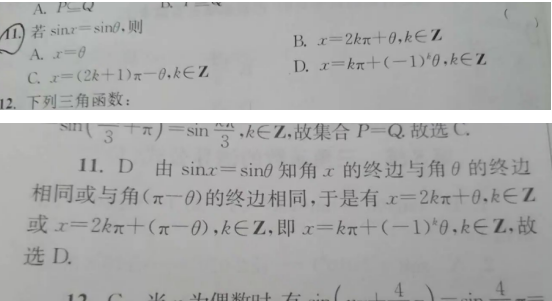 A. P⊆Q
(
11. 若 sinx=sinθ,则
A. x=θ
B. x=2kπ+θ,k∈Z
C. x=(2k+1)π−θ,k∈Z
D. x=kπ+(−1)ᵏθ,k∈Z
12. 下列三角函数:
sin(π/3+π)=sin π/3,k∈Z,故集合 P=Q.故选 C.
11. D 由 sinx=sinθ 知角 x 的终边与角 θ 的终边
相同或与角(π−θ)的终边相同,于是有 x=2kπ+θ,k∈Z
或 x=2kπ+(π−θ),k∈Z,即 x=kπ+(−1)ᵏθ,k∈Z,故
选 D.